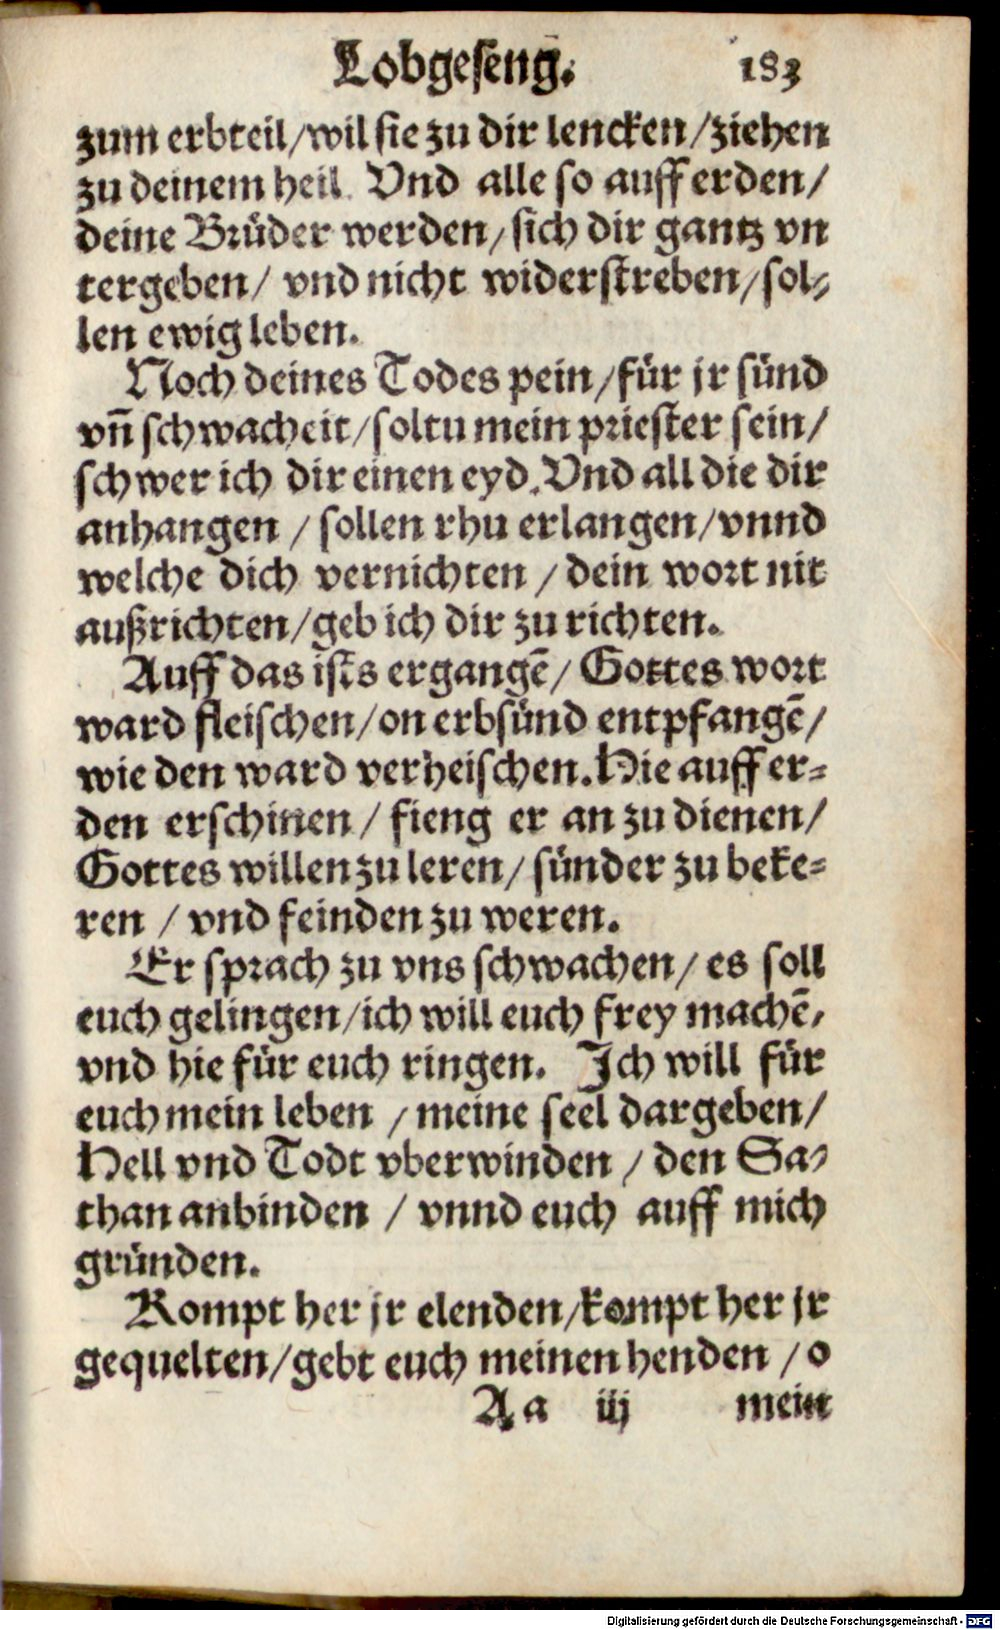 Lobgeseng. 183
zum erbteil/wil sie zu dir lencken/ziehen
zu deinem heil. Vnd alle so auff erden/
deine Brüder werden/sich dir gantz vn
tergeben/ vnd nicht widerstreben/sol-
len ewig leben.
Noch deines Todes pein/für jr sünd
vn̄ schwacheit/soltu mein priester sein/
schwer ich dir einen eyd. Vnd all die dir
anhangen / sollen rhu erlangen/vnnd
welche dich vernichten / dein wort nit
außrichten/geb ich dir zu richten.
Auff das ists ergangē/ Gottes wort
ward fleischen/on erbsünd entpfangē/
wie den ward verheischen. Hie auff er-
den erschinen/ fieng er an zu dienen/
Gottes willen zu leren/ sünder zu beke-
ren / vnd feinden zu weren.
Er sprach zu vns schwachen/ es soll
euch gelingen/ich will euch frey machē,
vnd hie für euch ringen. Ich will für
euch mein leben / meine seel dargeben/
Hell vnd Todt vberwinden / den Sa-
than anbinden / vnnd euch auff mich
gründen.
Kompt her jr elenden/kompt her jr
gequelten/gebt euch meinen henden / o
Aa iij mein
Digitalisierung gefördert durch die Deutsche Forschungsgemeinschaft - DFG